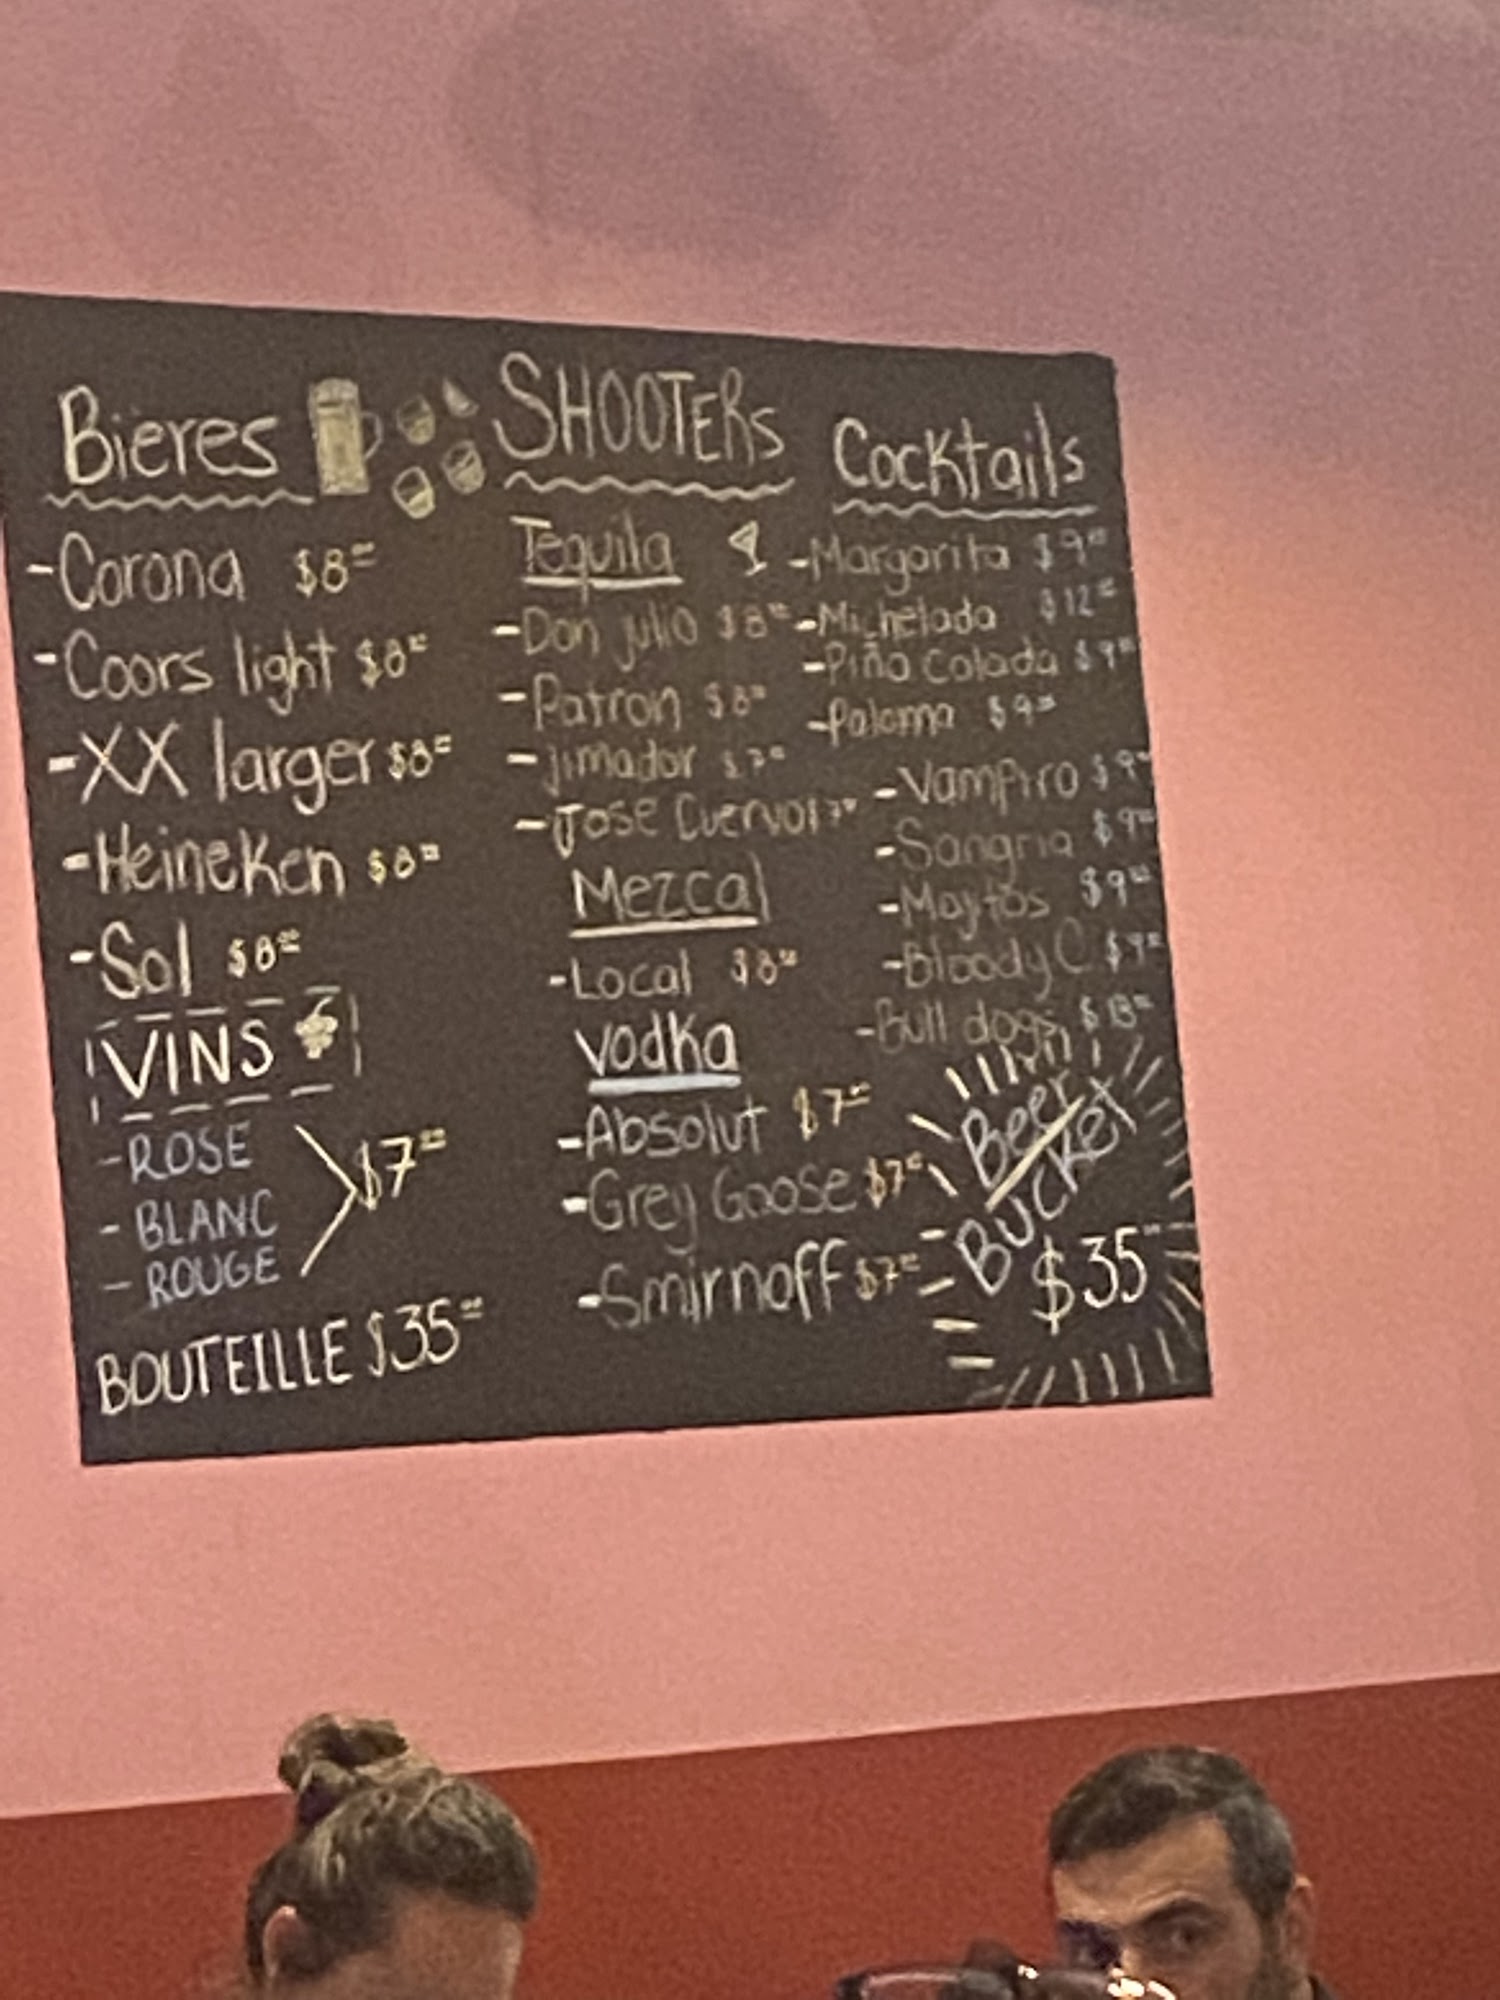 Bières
-Corona $8⁰⁰
-Coors light $8⁰⁰
-XX larger $8⁰⁰
-Heineken $8⁰⁰
-Sol $8⁰⁰
VINS
-ROSE
-BLANC
-ROUGE
$7⁰⁰
BOUTEILLE $35⁰⁰
SHOOTERS
Tequila
-Don julio $8⁰⁰
-Patron $8⁰⁰
-jimador $7⁰⁰
-Jose Cuervo
Mezcal
-Local $8⁰⁰
Vodka
-Absolut $7⁰⁰
-Grey Goose $7⁰⁰
-Smirnoff $7⁰⁰
Cocktails
-Margarita $9⁰⁰
-Michelada $12⁰⁰
-Piña Colada $9⁰⁰
-Paloma $9⁰⁰
-Vampiro $9⁰⁰
-Sangria $9⁰⁰
-Mojitos $9⁰⁰
-Bloody C. $9⁰⁰
-Bull dogs
Beer
Bucket
$35⁰⁰